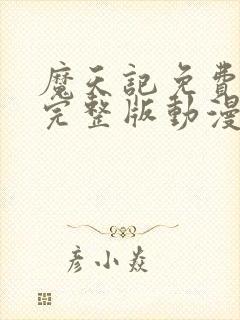 魔天記免費
完整版動漫
彦小焱